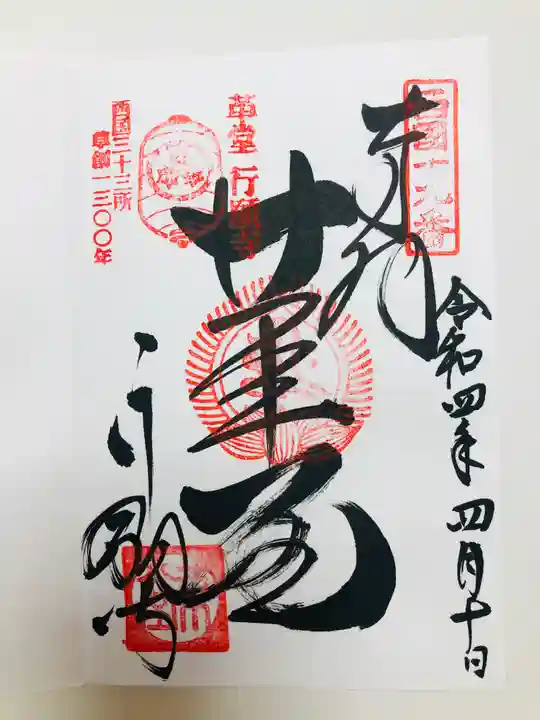 西国十九番
奉拝
令和四年四月十日
革堂行願寺
革堂
行願寺
西国三十三所
草創一三〇〇年